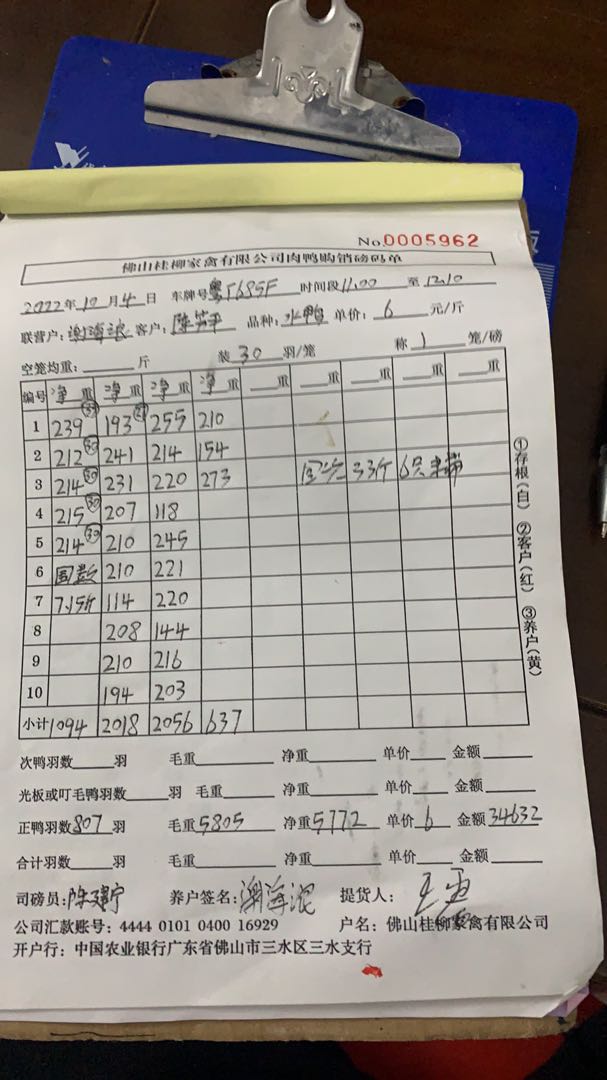 No.0005962
佛山桂柳家禽有限公司肉鸭购销磅码单
2022年10月4日 车牌号粤T685F 时间段11.00至12.10
联营户: 谢海 客户: 陈 品种: 水鸭 单价: 6 元/斤
空笼均重: 斤 装30羽/笼 称1笼/磅
编号 净重 净重 净重 净重 重 重 重 重
1 239 193 255 210
2 212 30 241 214 154
3 214 30 231 220 273 33斤 6只
4 215 30 207 118
5 214 30 210 245
6 210 221
7 7.15斤 114 220
8 208 144
9 210 216
10 194 203
小计 1094 2018 2056 637
次鸭羽数 羽 毛重 净重 单价 金额
光板或叮毛鸭羽数 羽 毛重 净重 单价 金额
正鸭羽数807羽 毛重5805 净重5772 单价6 金额34632
合计羽数 羽 毛重 净重 单价 金额
司磅员: 陈建宁 养户签名: 谢海 提货人: 王
公司汇款账号: 4444 0101 0400 16929 户名: 佛山桂柳家禽有限公司
开户行: 中国农业银行广东省佛山市三水区三水支行
①存根(白) ②客户(红) ③养户(黄)